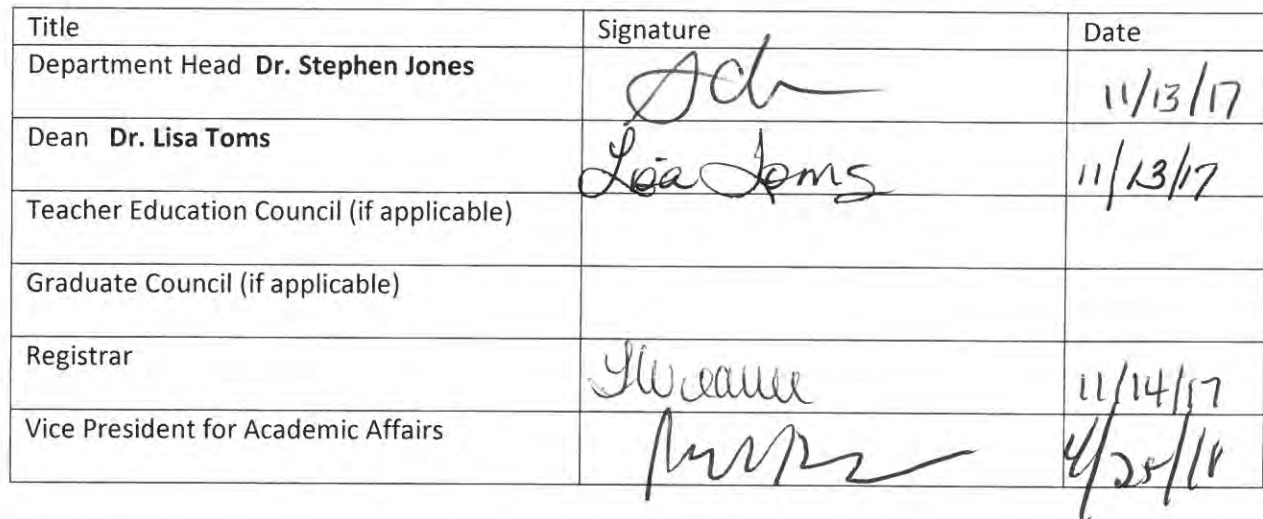 Title Signature Date
Department Head Dr. Stephen Jones 11/13/17
Dean Dr. Lisa Toms Lisa Toms 11/13/17
Teacher Education Council (if applicable)
Graduate Council (if applicable)
Registrar 11/14/17
Vice President for Academic Affairs 4/25/18